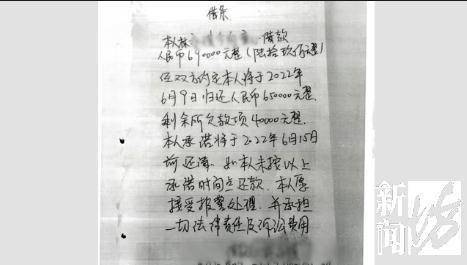 借条
本人 借款
人民币690000元整(陆拾玖万元整)
经双方约定本人将于2022年
6月9日归还人民币650000元整.
剩余所欠款项40000元整.
本人承诺将于2022年6月15日
前还清. 如本人未按以上
承诺时间点还款. 本人愿
接受报案处理. 并承担
一切法律责任及诉讼费用
新闻坊